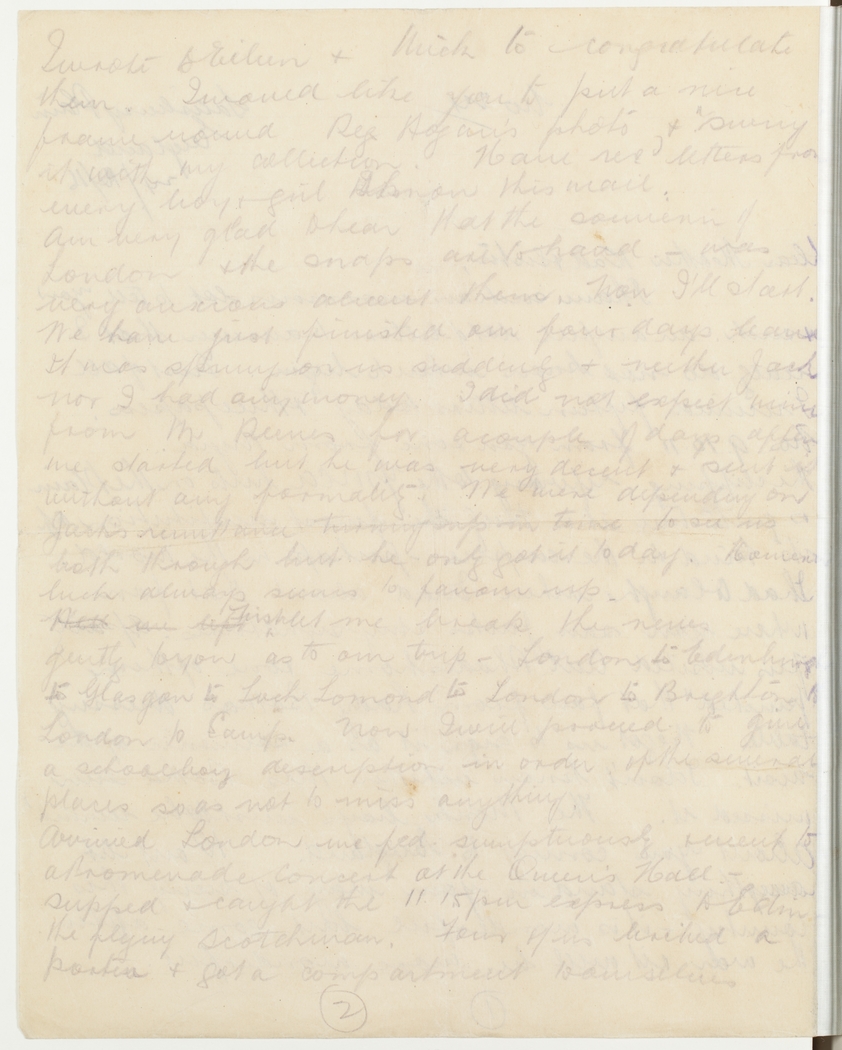 I wrote to Eileen & Mick to congratulate
them. I would like you to put a nice
frame round Reg Hogan's photo & "swing
it with my collection. Have rec'd letters from
every boy & girl I know this mail.
Am very glad to hear that the souvenir of
London & the snaps are to hand — was
very anxious about them. Now I'll start.
We have just finished our four days leave
It was sprung on us suddenly & neither Jack
nor I had any money. I did not expect mine
from Mr for a couple of days after
we started but he was very decent & sent it
without any formality. We were depending on
Jack's turning up in time to see us
both through but he only got it today. However
luck always seems to favour us.
First let me break the news
gently to you as to our trip – London to Edinburgh
to Glasgow to Loch Lomond to London to Brighton to
London to Camp. Now I will proceed to give
a schoolboy description in order of the several
places so as not to miss anything
Arrived London we fed sumptuously & went to
a Promenade Concert at the Queen's Hall –
supped & caught the 11.15pm express to Edin
the flying Scotchman. Four of us bribed a
porter & got a compartment to ourselves
2